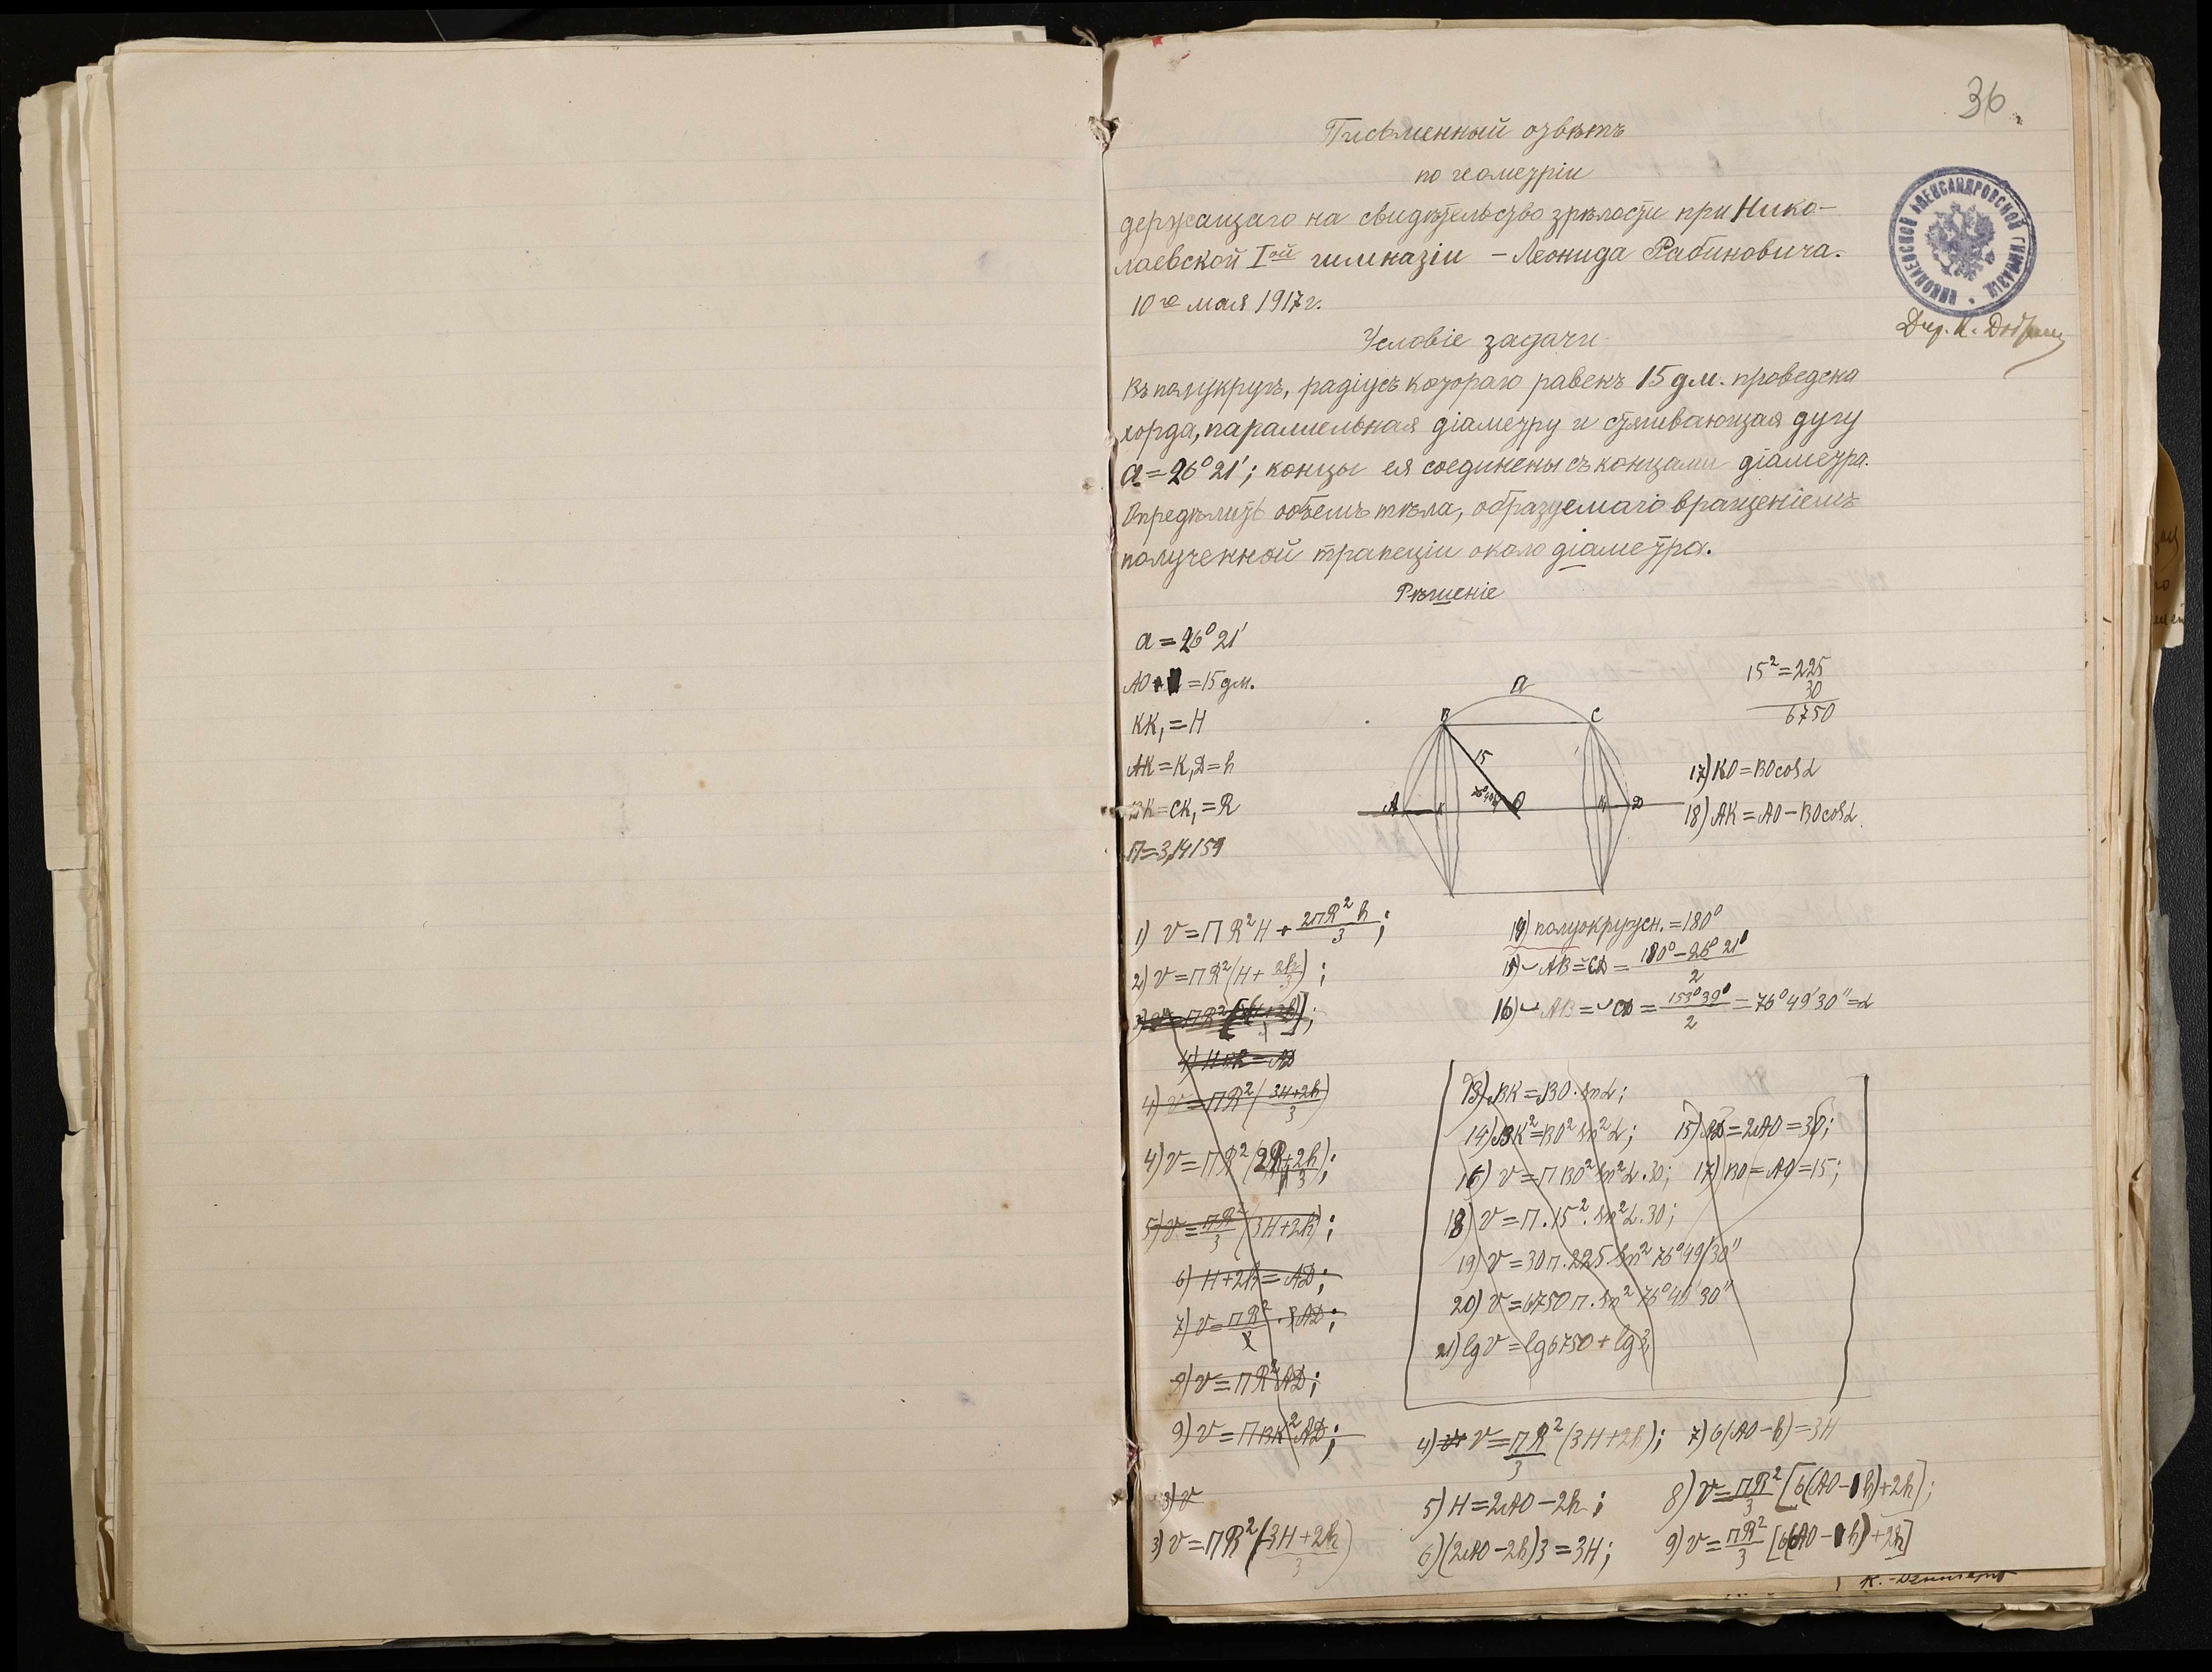 36
Письменный отвѣтъ
по геометріи
держащаго на свидѣтельство зрѣлости при Нико-
лаевской Iой гимназіи – Леонида Рабиновича.
10го мая 1917г.
НИКОЛАЕВСКОЙ АЛЕКСАНДРОВСКОЙ ГИМНАЗІИ
Условіе задачи
Въ полукругъ, радіусъ котораго равенъ 15 дм. проведена
хорда, параллельная діаметру и стягивающая дугу
a = 26° 21'; концы ея соединены съ концами діаметра.
Опредѣлить объемъ тѣла, образуемаго вращеніемъ
полученной трапеціи около діаметра.
Рѣшеніе
a = 26° 21'
AO = 15 дм.
KK₁ = H
AK = K₁D = h
BK = CK₁ = R
П = 3,14159
15² = 225
30
6750
a
B C
15
A K O K D
17) KO = BO cos α
18) AK = AO – BO cos α
1) V = ПR²H + 2ПR²h/3 ;
2) V = ПR²(H + 2h/3) ;
4) H + 2h = AD
4) V = ПR²(3H+2h/3)
5) V = ПR²/3 (3H+2h) ;
6) H + 2h = AD ;
7) V = ПR²/3 · 3AD ;
8) V = ПR² AD ;
9) V = ПBK² AD ;
3) V
3) V = ПR² (3H+2h/3)
14) полуокружн. = 180°
15) ◡ AB = CD = 180° – 26° 21'/2
16) ◡ AB = ◡ CD = 153° 39'/2 = 76° 49' 30" = α
13) BK = BO · sin α ;
14) BK² = BO² sin² α ; 15) AD = 2AO = 30 ;
16) V = П BO² sin² α · 30 ; 17) BO = AO = 15 ;
18) V = П · 15² · sin² α · 30 ;
19) V = 30 П · 225 sin² 76° 49' 30"
20) V = 6750 П · sin² 76° 49' 30"
21) lg V = lg 6750 + lg 3,
4) V = ПR²/3 (3H+2h) ; 7) 6(AO – h) = 3H
5) H = 2AO – 2h ; 8) V = ПR²/3 [6(AO – h) + 2h] ;
6) (2AO – 2h) 3 = 3H ; 9) V = ПR²/3 [6(AO – h) + 2h]